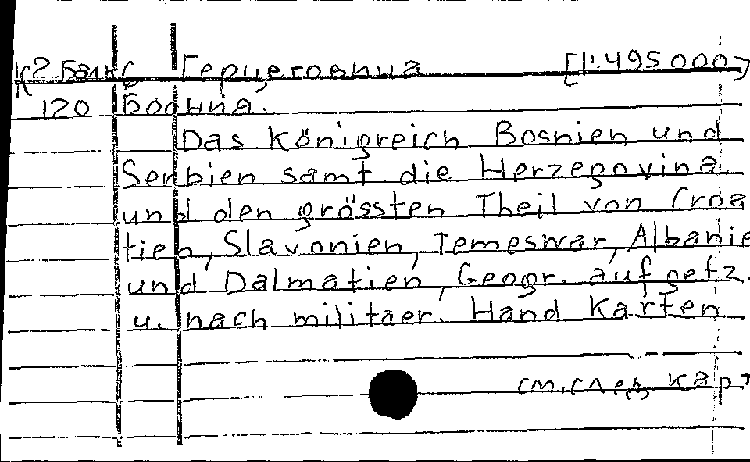 К2 Балк Герцеговина [1:495 000]
120 Босния.
Das Königreich Bosnien und
Serbien samt die Herzegovina
und den grössten Theil von Croa
tien, Slavonien, Temeswar, Albanie
und Dalmatien, Geogr. aufgetz.
u. nach militaer. Hand Karten
см. след. карт